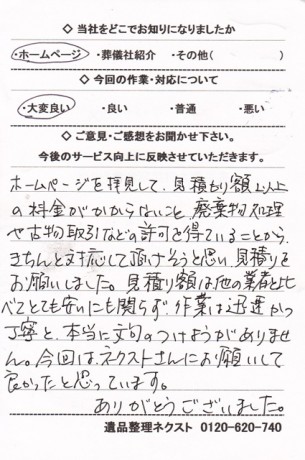 ◇ 当社をどこでお知りになりましたか
・ホームページ ・葬儀社紹介 ・その他( )
◇ 今回の作業・対応について
・大変良い ・良い ・普通 ・悪い
◇ ご意見・ご感想をお聞かせ下さい。
今後のサービス向上に反映させていただきます。
ホームページを拝見して、見積もり額以上
の料金がかからないこと、廃棄物処理
や古物取引などの許可を得ていることから、
きちんと対応して頂けそうと思い、見積りを
お願いしました。見積り額は他の業者と比
べてとても安いにも関らず、作業は迅速かつ
丁寧と、本当に文句のつけようがありませ
ん。今回はネクストさんにお願いして
良かったと思っています。
ありがとうございました。
遺品整理ネクスト 0120-620-740